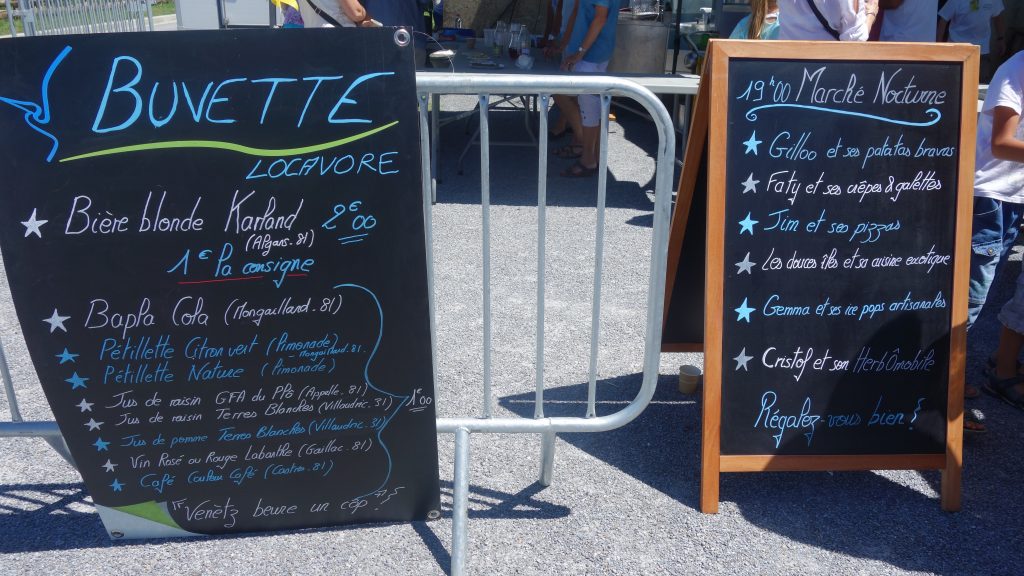 BUVETTE
LOCAVORE
Bière blonde Karland 2€00
(Algans. 81)
1€ la consigne
Bapla Cola (Mongailland. 81)
Pétillette Citron vert (Limonade)
- Mongailland. 81.
Pétillette Nature (Limonade)
Jus de raisin GFA du Pfô (Appelle. 81)
Jus de raisin Terres Blanches (Villaudric. 31)
1€00
Jus de pomme Terres Blanches (Villaudric. 31)
Vin Rosé ou Rouge Labarthe (Gaillac. 81)
Café Couleur Café (Castres. 81)
"Venètz beure un còp"!
19h00 Marché Nocturne
Gilloo et ses patatas bravas
Faty et ses crêpes & galettes
Jim et ses pizzas
Les douces îles et sa cuisine exotique
Gemma et ses ice pops artisanales
Cristof et son HerbÔmobile
Régalez-vous bien !